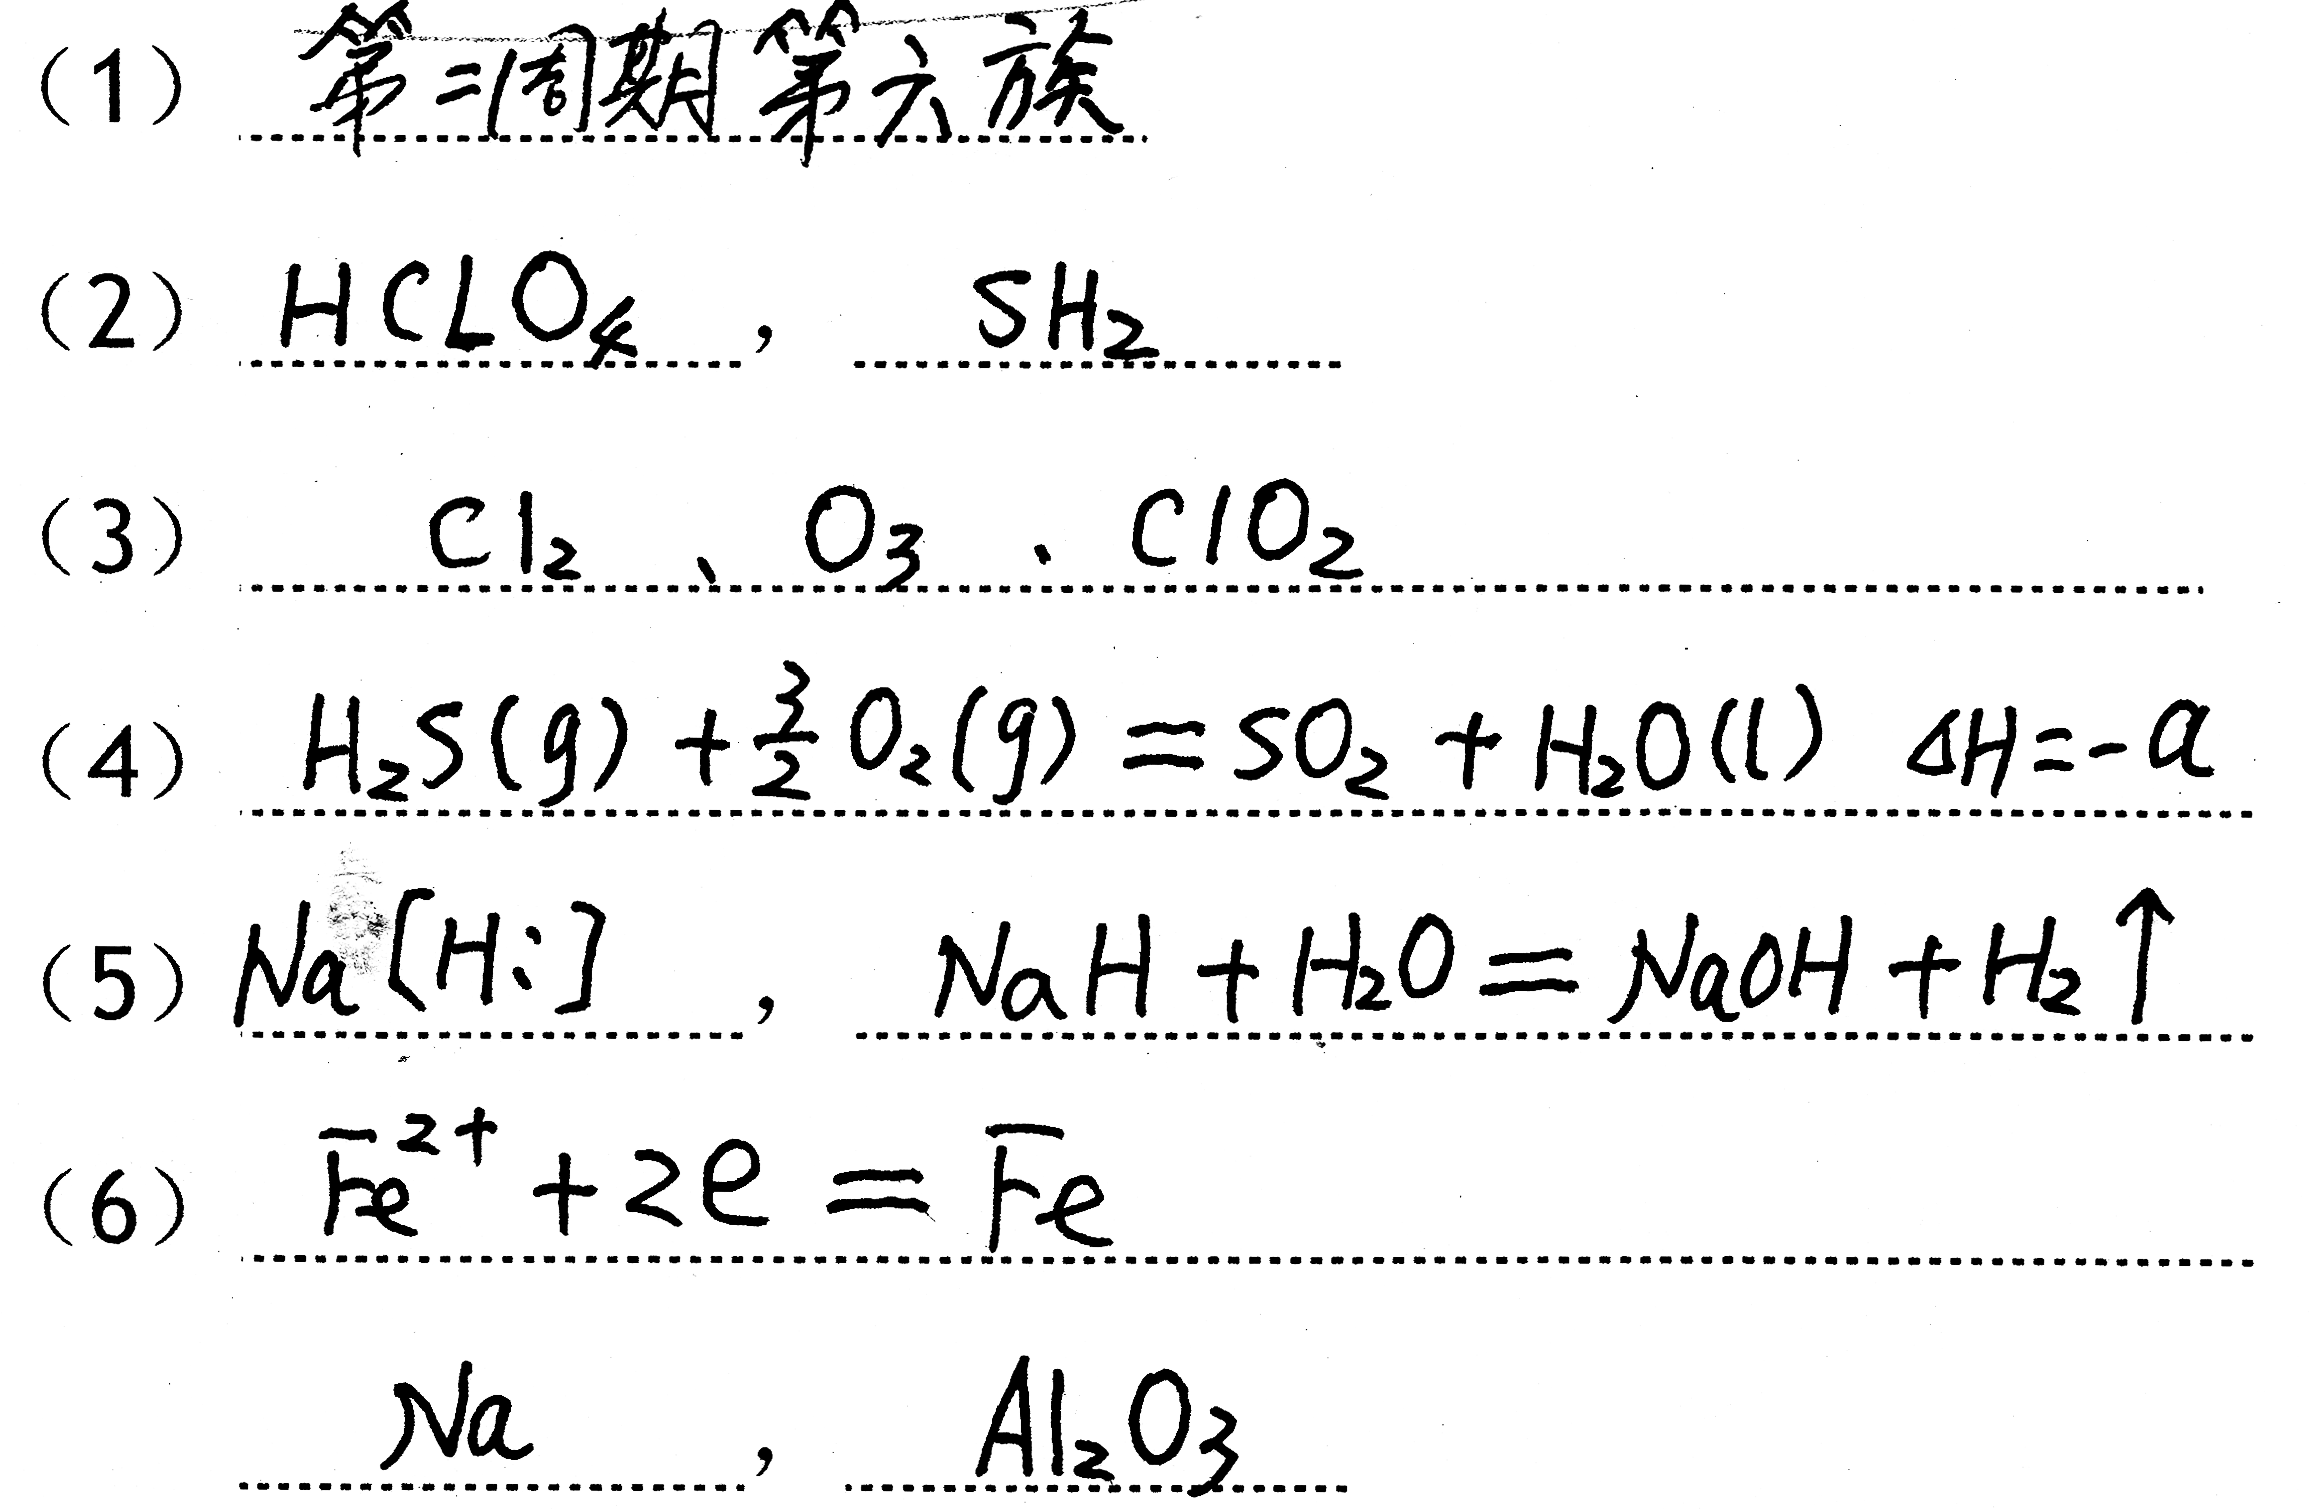 (1) 第二周期第六族
(2) HCLO₄ , SH₂
(3) Cl₂、O₃、ClO₂
(4) H₂S(g) + 3/2 O₂(g) = SO₂ + H₂O(l) ΔH=-a
(5) Na[H:] , NaH + H₂O = NaOH + H₂↑
(6) Fe²⁺ + 2e = Fe
Na , Al₂O₃